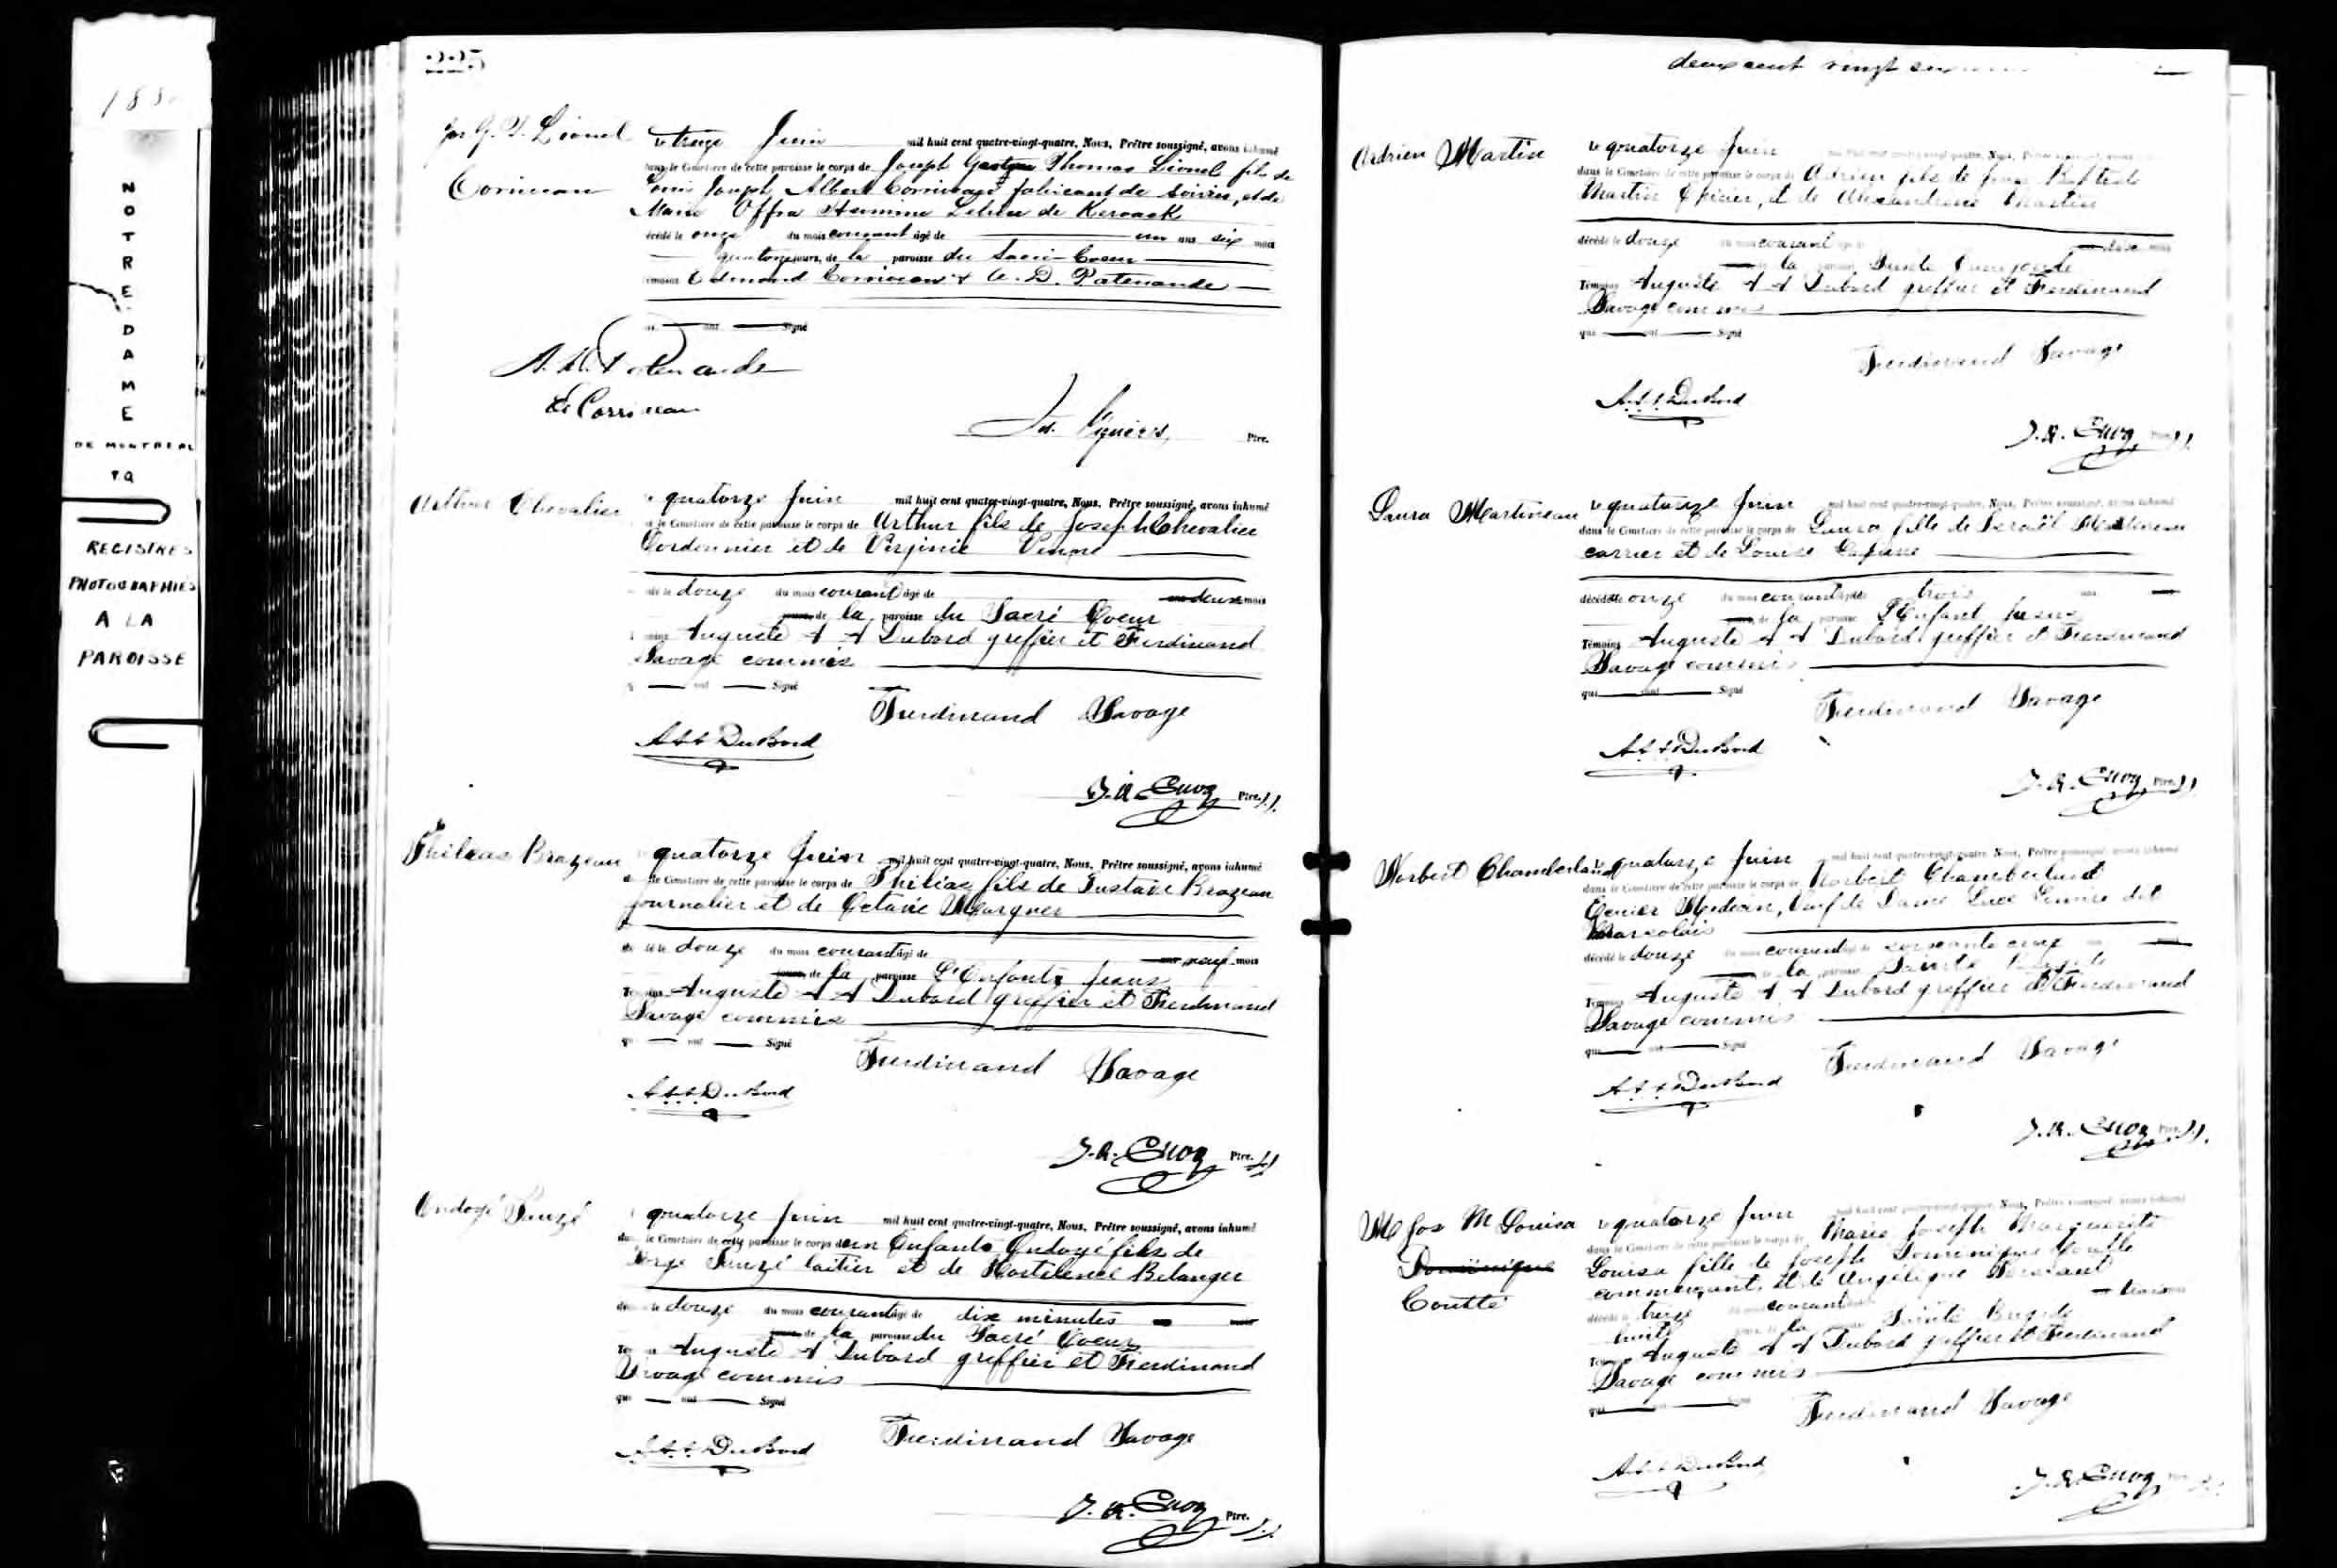 188
NOTRE-DAME
DE MONTREAL
P.Q
REGISTRES
PHOTOGRAPHIES
A LA
PAROISSE
225
Jos G. T. Lionel
Corriveau
le treize Juin mil huit cent quatre-vingt-quatre, Nous, Prêtre soussigné, avons inhumé
dans le Cimetière de cette paroisse le corps de Joseph Gaston Thomas Lionel fils de
Louis Joseph Albert Corriveau fabricant de soieries, et de
Marie Offra Hermine Lebrun de Kerouack
décédé le onze du mois courant âgé de un ans six mois
quatorze jours, de la paroisse du Sacré-Coeur
Témoins Edmond Corriveau & A. D. Patenaude
ont Signé
A. D. Patenaude
E Corriveau
Ptre.
Arthur Chevalier
quatorze Juin mil huit cent quatre-vingt-quatre, Nous, Prêtre soussigné, avons inhumé
le Cimetière de cette paroisse le corps de Arthur fils de Joseph Chevalier
Cordonnier et de Virginie
douze du mois courant âgé de deux mois
jours, de la paroisse du Sacré Coeur
Auguste A A Dubord greffier et Ferdinand
Savage commis
ont Signé
Ferdinand Savage
A A A DuBord
J. A. Cuoq Ptre. S.S.
Philias Brazeau
quatorze Juin mil huit cent quatre-vingt-quatre, Nous, Prêtre soussigné, avons inhumé
le Cimetière de cette paroisse le corps de Philias fils de Gustave Brazeau
journalier et de Octavie
douze du mois courant âgé de neuf mois
jours, de la paroisse L'Enfant Jesus
Témoins Auguste A A Dubord greffier et Ferdinand
Savage commis
ont Signé
Ferdinand Savage
A A A DuBord
J. A. Cuoq Ptre. S.S.
Ondoyé Pauzé
quatorze Juin mil huit cent quatre-vingt-quatre, Nous, Prêtre soussigné, avons inhumé
le Cimetière de cette paroisse le corps d'un Enfant Ondoyé fils de
Pauzé laitier et de Belanger
le douze du mois courant âgé de dix minutes
jours, de la paroisse du Sacré Coeur
Auguste A Dubord greffier et Ferdinand
Savage commis
qui ont Signé
Ferdinand Savage
A A A DuBord
J. A. Cuoq Ptre. S.S.
deux cent vingt six
Adrien Martin
le quatorze Juin
dans le Cimetière de cette paroisse le corps de Adrien fils de Jean Bte
Martin Epicier, et de Alexandrine Martin
décédé le douze du mois courant mois
la paroisse
Témoins Auguste A A Dubord greffier et Ferdinand
Savage commis
qui ont Signé
Ferdinand Savage
A A A DuBord
J. A. Cuoq Ptre. S.S.
Laura Martineau
le quatorze Juin mil huit cent quatre-vingt-quatre, Nous, Prêtre soussigné, avons inhumé
dans le Cimetière de cette paroisse le corps de Laura fille de Israël Martineau
carrier et de Louise
décédée le onze du mois courant âgée trois ans
de la paroisse L'Enfant Jesus
Témoins Auguste A A Dubord greffier et Ferdinand
Savage commis
qui ont Signé
Ferdinand Savage
A A A DuBord
J. A. Cuoq Ptre. S.S.
Norbert Chamberland
le quatorze Juin mil huit cent quatre-vingt-quatre, Nous, Prêtre soussigné, avons inhumé
dans le Cimetière de cette paroisse le corps de Norbert Chamberland
Medecin, veuf de Dame Luce dit
décédé le douze du mois courant âgé de soixante cinq
la paroisse Sainte Brigide
Témoins Auguste A A Dubord greffier et Ferdinand
Savage commis
qui ont Signé
Ferdinand Savage
A A A DuBord
J. A. Cuoq Ptre. S.S.
M Jos M Louisa
Dominique
Coutté
le quatorze Juin mil huit cent quatre-vingt-quatre, Nous, Prêtre soussigné, avons inhumé
dans le Cimetière de cette paroisse le corps de Marie Joseph Marguerite
Louisa fille de Joseph Dominique Coutté
commerçant, et de Angelique
décédée le treize du mois courant trois mois
huit jours, de la paroisse Sainte Brigide
Témoins Auguste A A Dubord greffier et Ferdinand
Savage commis
qui ont Signé
Ferdinand Savage
A A A DuBord
J. A. Cuoq